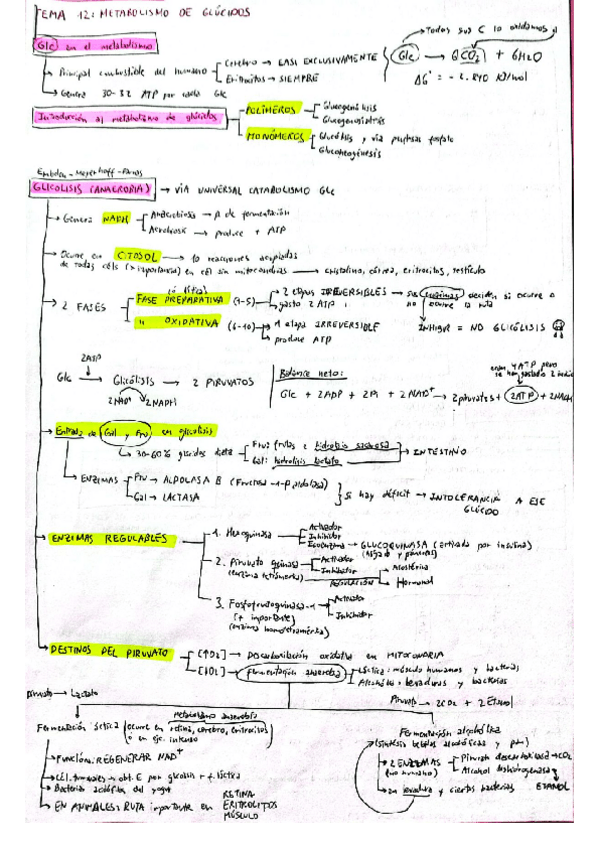 TEMA 12: METABOLISMO DE GLÚCIDOS
Todos sus C lo oxidamos
Glc en el metabolismo
Principal combustible del humano
Cerebro → CASI EXCLUSIVAMENTE
Eritrocitos → SIEMPRE
Glc → 6CO2 + 6H2O
ΔG' = -2.840 KJ/mol
Genera 30-32 ATP por cada Glc
Introducción al metabolismo de glúcidos
POLÍMEROS
Glucogenólisis
Glucogenogénesis
MONÓMEROS
Glucólisis, y vía pentosas fosfato
Gluconeogénesis
Embden-Meyerhoff-Parnas
GLICOLISIS (ANAEROBIA) → VÍA UNIVERSAL CATABOLISMO Glc
Genera NADH
Anaerobiosis → de fermentación
Aerobiosis → produce + ATP
Ocurre en CITOSOL → 10 reacciones acopladas
de todas céls (> importancia) en cél sin mitocondrias → cristalino, córnea, eritrocitos, testículo
2 FASES
FASE PREPARATIVA (1-5)
2 etapas IRREVERSIBLES → sus enzimas deciden si ocurre o no ocurre la ruta
gasto 2 ATP
" OXIDATIVA (6-10)
1 etapa IRREVERSIBLE
produce ATP
INHIBIR = NO GLICÓLISIS
2ATP
Glc → Glicólisis → 2 PIRUVATOS
2NAD+ 2NADH
Balance neto:
Glc + 2ADP + 2Pi + 2NAD+ → 2piruvatos + 2ATP + 2NADH
Entrada de Gal y Fru en glicolisis
30-60% glúcidos dieta
Fru: frutas e hidrólisis sacarosa
Gal: hidrólisis lactosa
INTESTINO
ENZIMAS
Fru → ALDOLASA B (Fructosa-1-P aldolasa)
Gal → LACTASA
Si hay déficit → INTOLERANCIA A ESE GLÚCIDO
ENZIMAS REGULABLES
1. Hexoquinasa
Activador
Inhibidor
Isoenzima → GLUCOQUINASA (activada por insulina)
(hígado y páncreas)
2. Piruvato quinasa
(enzima tetrámera)
Activador
Inhibidor
REGULACIÓN
Alostérica
Hormonal
3. Fosfofrutoquinasa-1
(+ importante)
(enzima homotetramérica)
Activador
Inhibidor
DESTINOS DEL PIRUVATO
[↑O2] → Descarboxilación oxidativa en MITOCONDRIA
[↓O2] → fermentación anaerobia
Láctica: músculo humanos y bacterias
Alcohólica: levaduras y bacterias
Piruvato → Lactato
Piruvato → 2CO2 + 2 Etanol
Metabolismo anaerobio
Fermentación láctica (ocurre en retina, cerebro, eritrocitos)
o en ejc. intenso
FUNCIÓN: REGENERAR NAD+
Cél. tumorales → obt. E por glicolisis + f. láctica
Bacterias acidófilas del yogur
EN ANIMALES: RUTA importante en
RETINA
ERITROCITOS
MÚSCULO
Fermentación alcohólica
(síntesis bebidas alcohólicas y pan)
2 ENZIMAS
(no humano)
Piruvato descarboxilasa → CO2
Alcohol deshidrogenasa
ETANOL
en levadura y ciertas bacterias